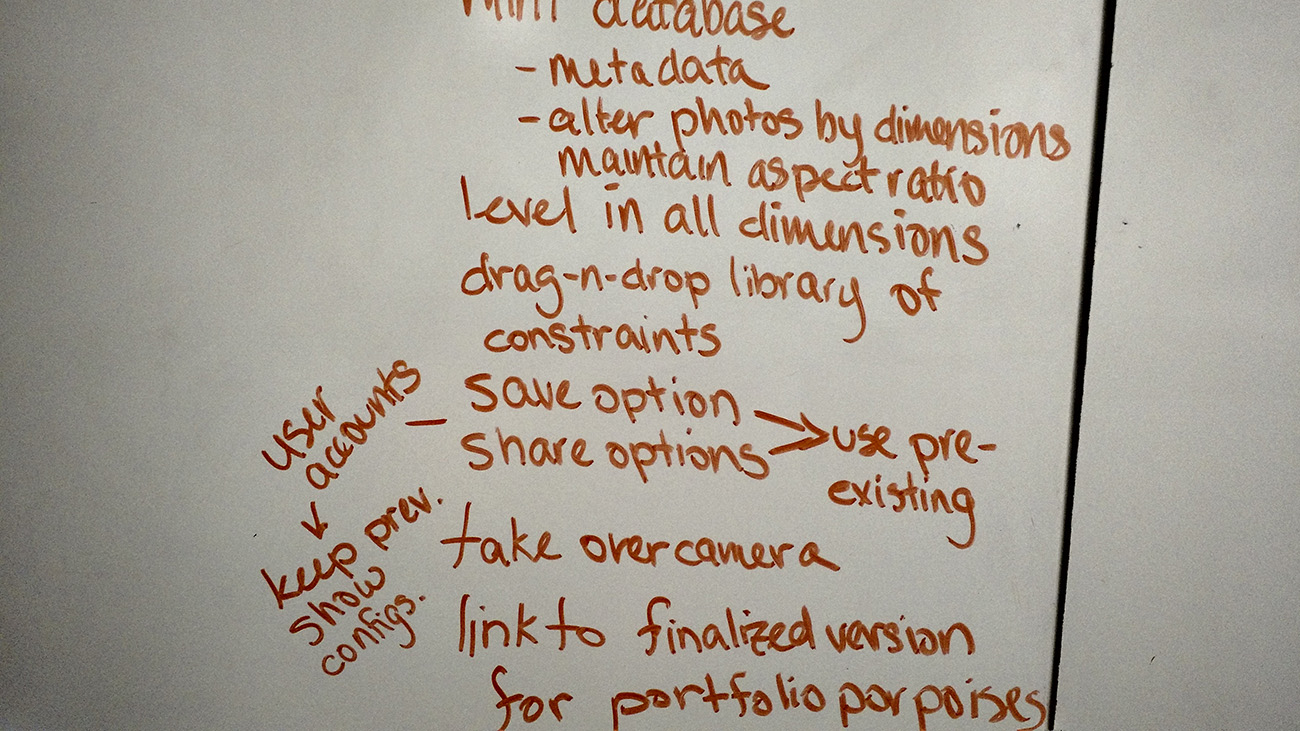 mini database
- metadata
- alter photos by dimensions
maintain aspect ratio
level in all dimensions
drag-n-drop library of
constraints
save option
share options
use pre-
existing
user
accounts
keep prev.
show
configs.
take over camera
link to finalized version
for portfolio porpoises